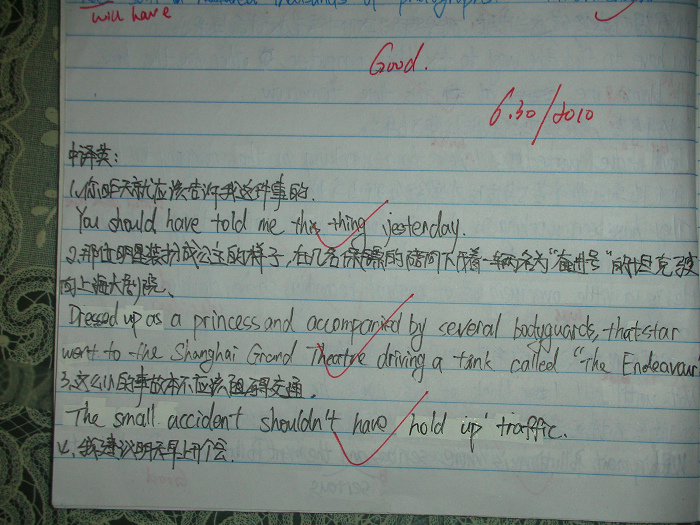 will have
Good.
6.30/2010
中译英:
1.你昨天就应该告诉我这种事的.
You should have told me this thing yesterday.
2.那位明星装扮成公主的样子,在几名保镖的陪同下开着一辆名为"奋进号"的坦克驶
向上海大剧院、
Dressed up as a princess and accompanied by several bodyguards, that star
went to the Shanghai Grand Theatre driving a tank called "The Endeavour
3.这么小的事故本不应该阻碍交通.
The small accident shouldn't have hold up traffic.
4.我建议明天早上开个会.